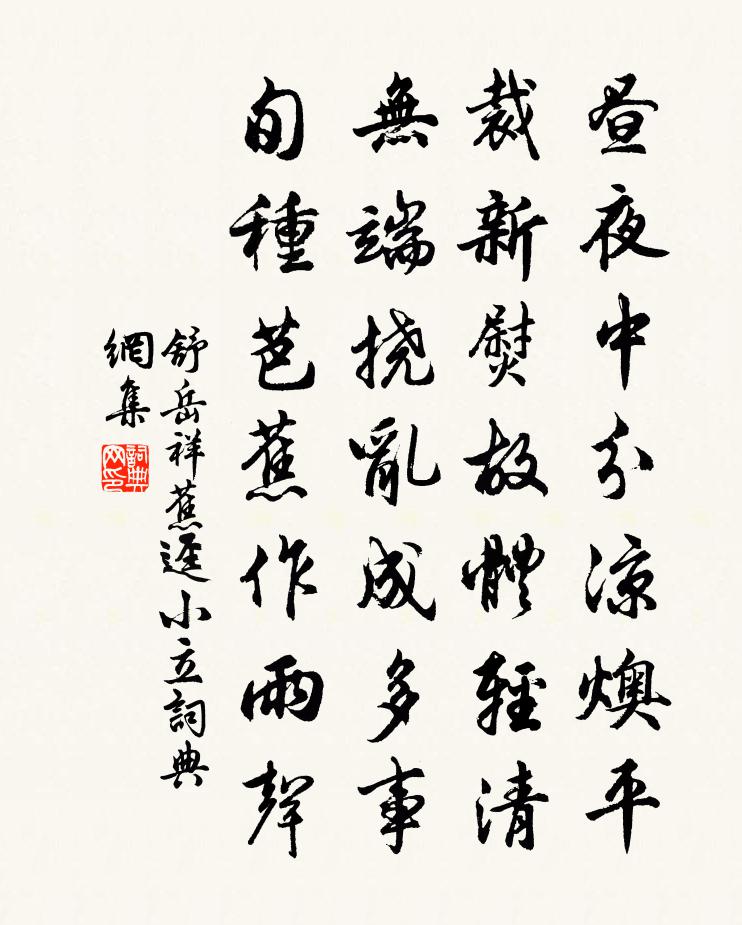 昼夜中分涼燠平
裁新熨故體輕清
無端撓亂成多事
旬種芭蕉作雨聲
舒岳祥蕉逕小立詞典
網集
詞典
网印